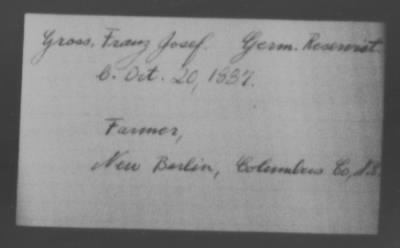 Gross, Franz Josef. Germ. Reservist
b. Oct. 20, 1887.
Farmer,
New Berlin, Columbus Co, N.C.